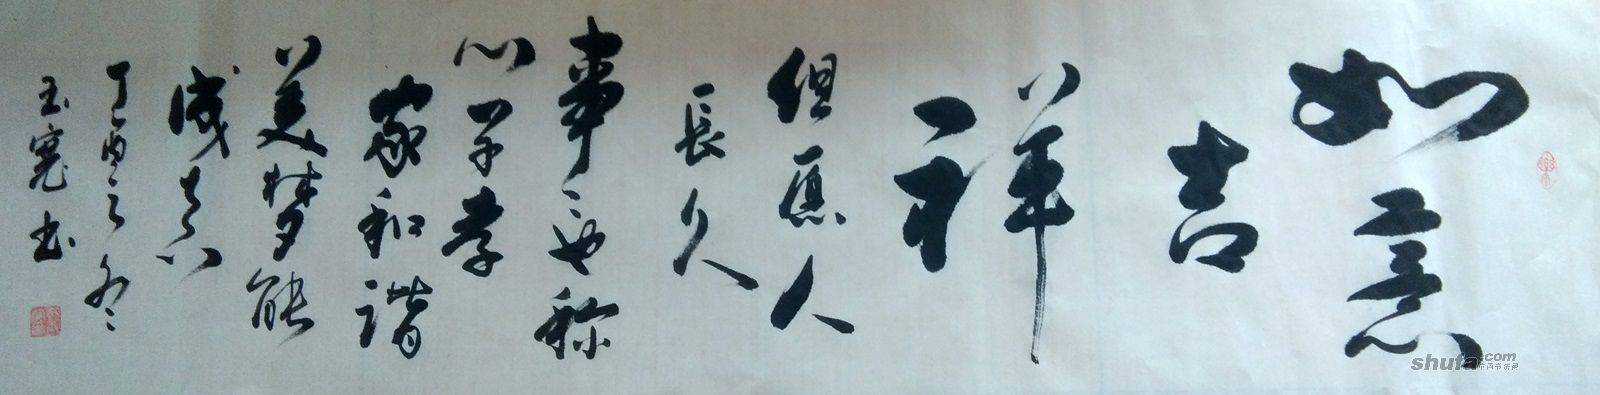 如意
吉
祥
但愿人
長久
事々称
心子孝
家和谐
美梦能
成真
丁酉之冬
玉宽书
shufa.com